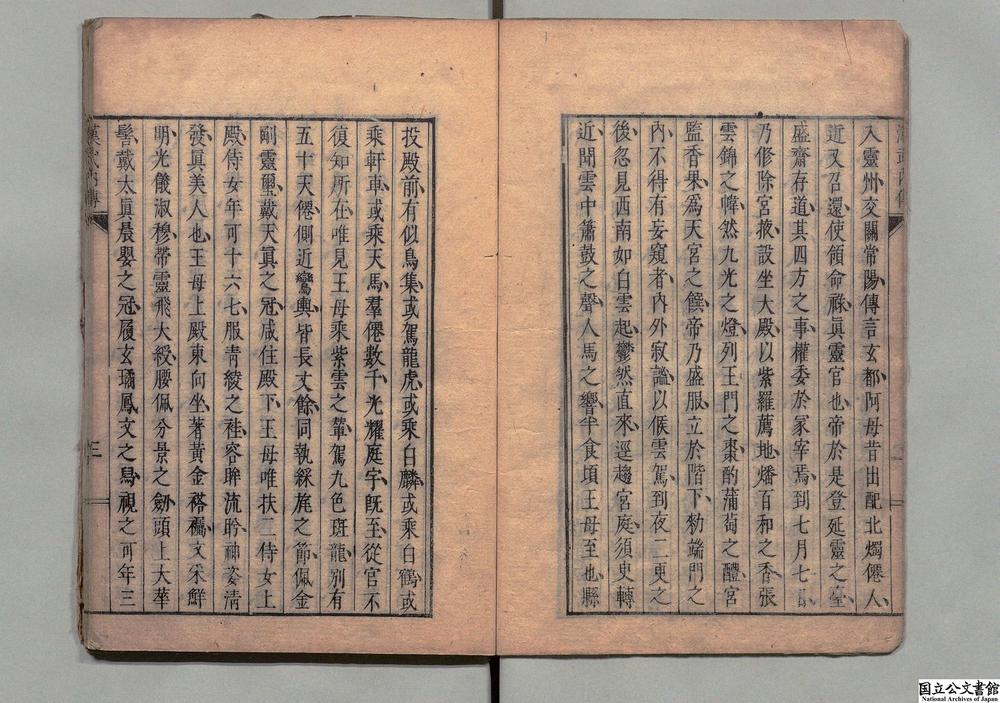 入靈州交關常陽傳言玄都阿母昔出配北燭僊人
近又召還使領命祿眞靈官也帝於是登延靈之臺
盛齋存道其四方之事權委於冢宰焉到七月七日
乃修除宮掖設坐大殿以紫羅薦地燔百和之香張
雲錦之幃然九光之燈列王門之棗酌蒲萄之醴宮
監香果爲天宮之饌帝乃盛服立於階下勑端門之
內不得有妄窺者內外寂謐以候雲駕到夜二更之
後忽見西南如白雲起鬱然直來逕趨宮庭須史轉
近聞雲中簫鼓之聲人馬之響半食頃王母至也縣
投殿前有似鳥集或駕龍虎或乘白麟或乘白鶴或
乘軒車或乘天馬羣僊數千光耀庭宇既至從官不
復知所在唯見王母乘紫雲之輦駕九色斑龍別有
五十天僊側近鸞輿皆長丈餘同執綵旄之節佩金
剛靈璽戴天眞之冠咸住殿下王母唯扶二侍女上
殿侍女年可十六七服青綾之袿容眸流盻神姿清
發眞美人也王母上殿東向坐著黃金褡襡文采鮮
明光儀淑穆帶靈飛大綬腰佩分景之劒頭上大華
髻戴太眞晨嬰之冠履玄璚鳳文之舄視之可年三
漢武內傳
三
国立公文書館
National Archives of Japan